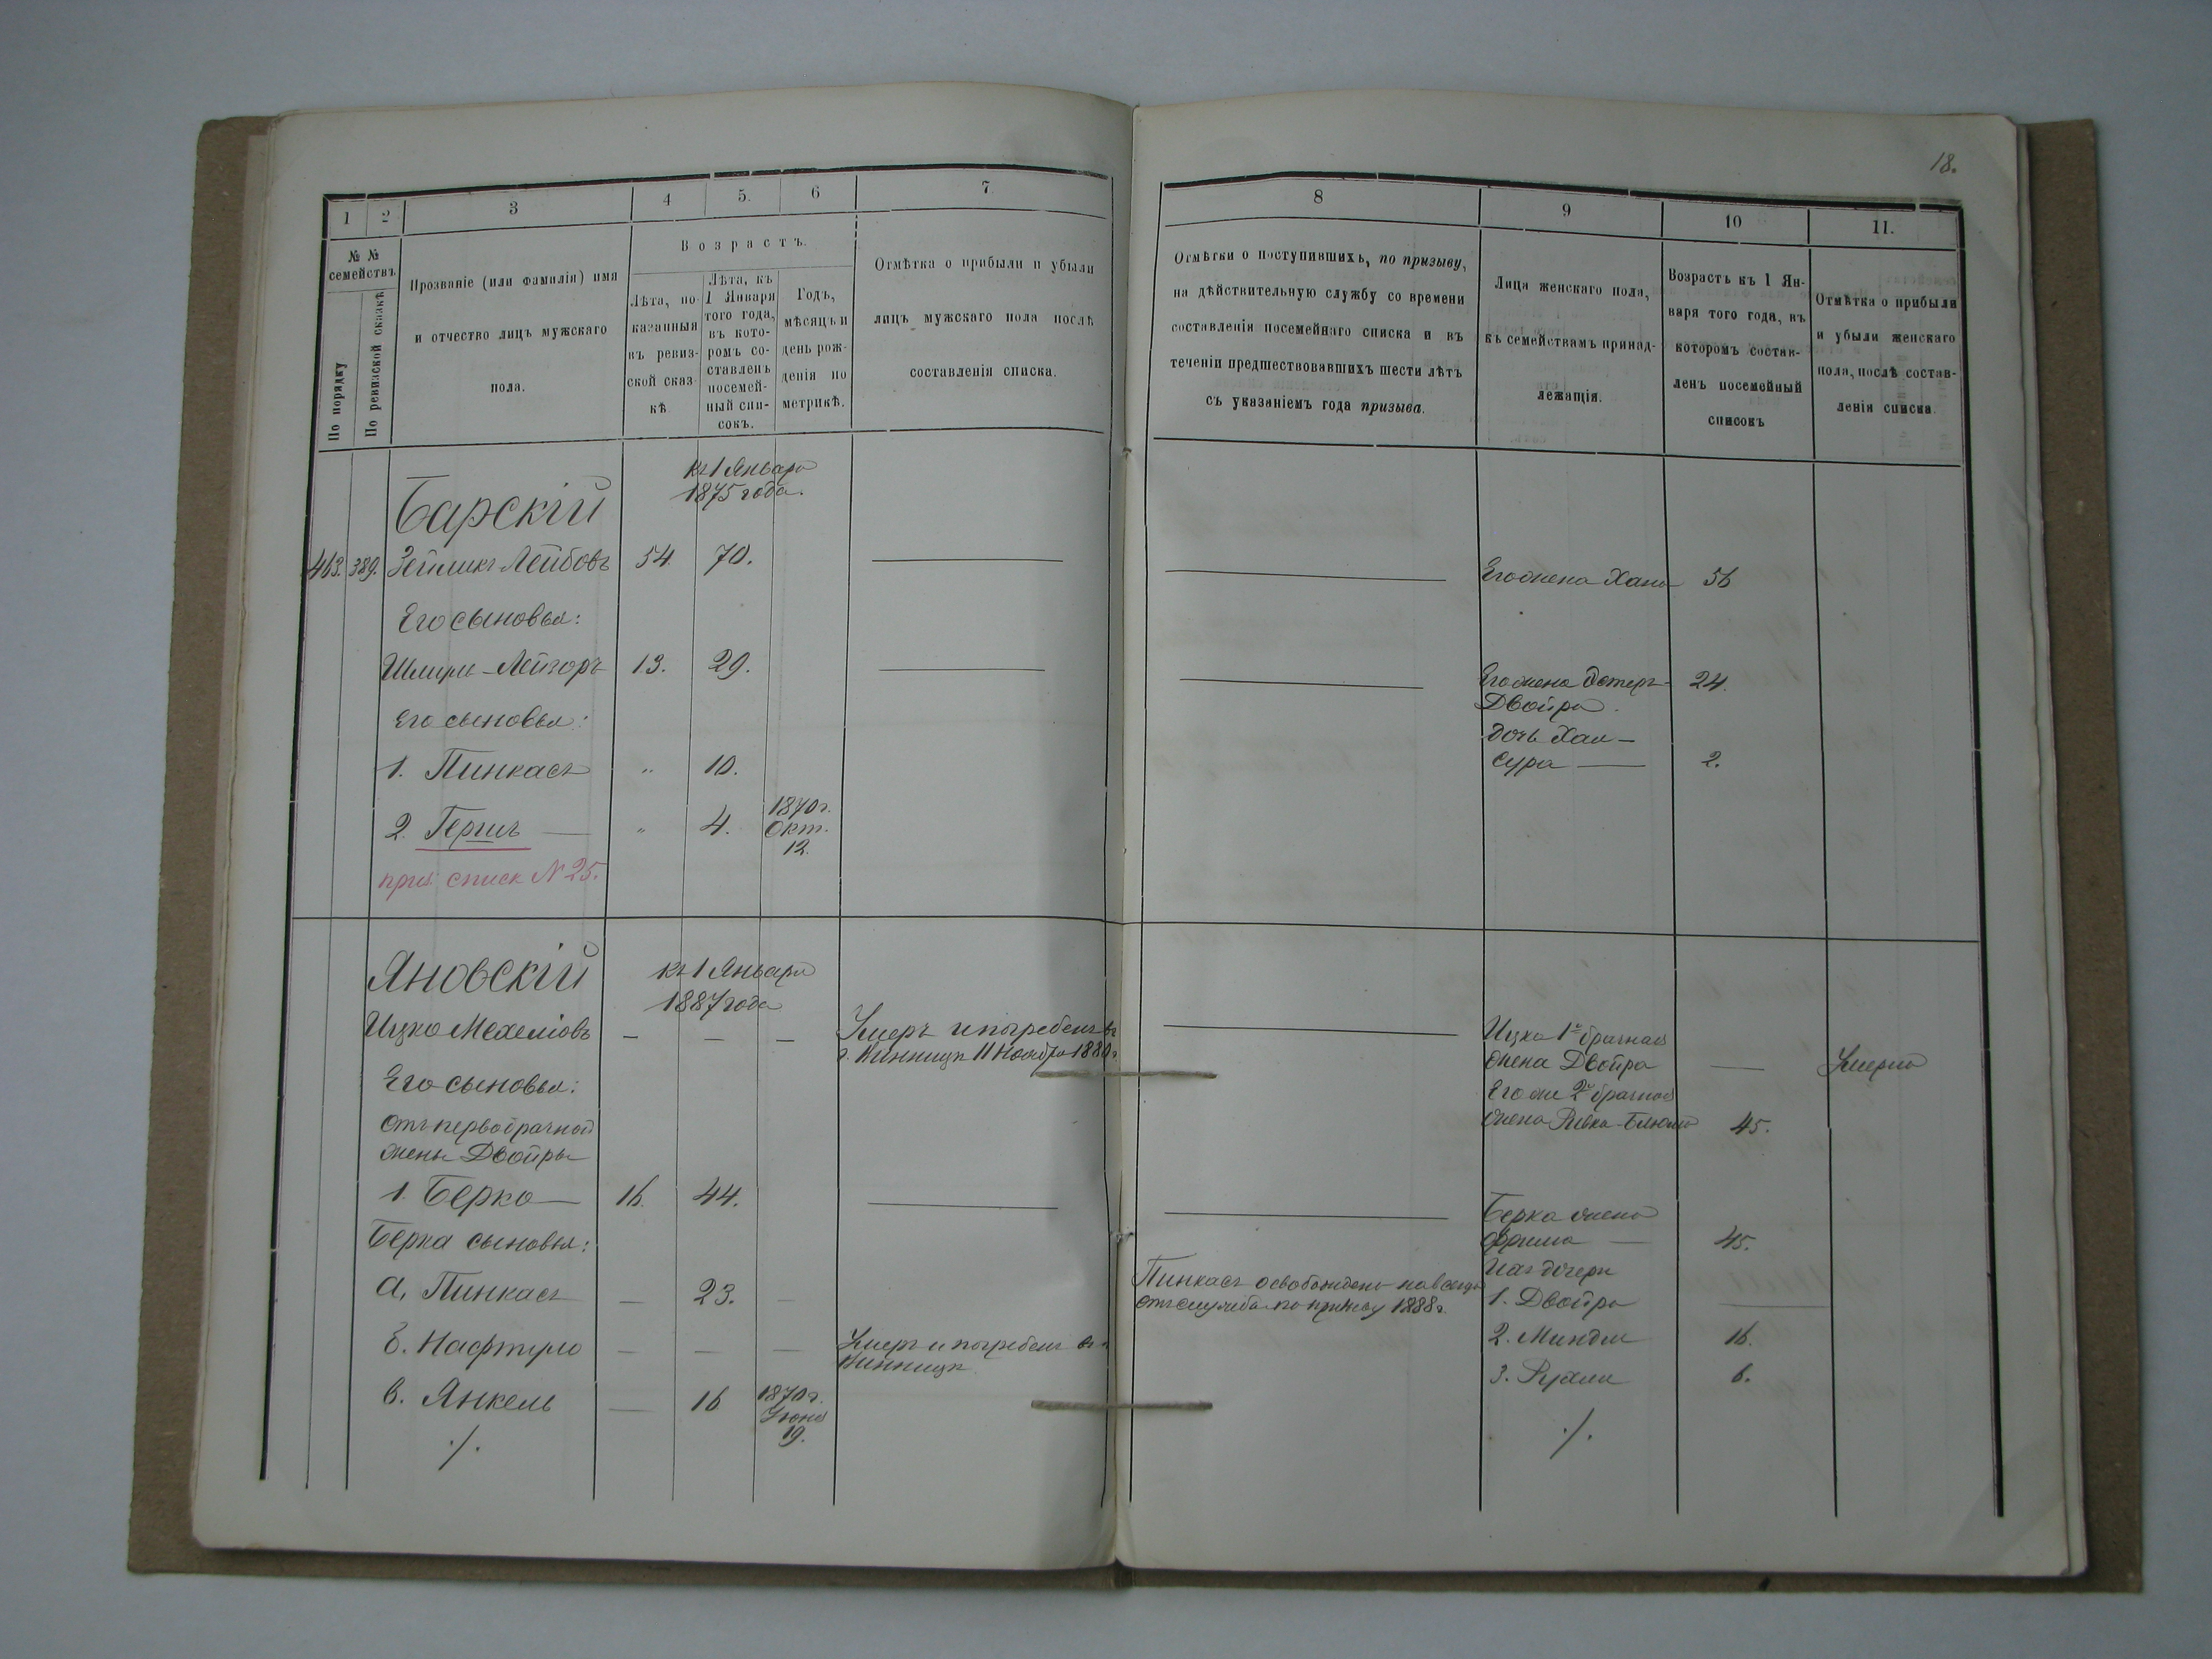 18.
1
2
3
4
5.
6
7
№ №
семействъ
По порядку
По ревизской сказкѣ
Прозваніе (или фамилія) имя
и отчество лицъ мужскаго
пола.
Возрастъ.
Лѣта, по-
казанныя
въ ревиз-
ской сказ-
кѣ
Лѣта, къ
1 Января
того года,
въ кото-
ромъ со-
ставленъ
посемей-
ный спи-
сокъ.
Годъ,
мѣсяцъ и
день рож-
денія по
метрикѣ.
Отмѣтка о прибыли и убыли
лицъ мужскаго пола послѣ
составленія списка.
8
9
10
11.
Отмѣтки о поступившихъ, по призыву,
на дѣйствительную службу со времени
составленія посемейнаго списка и въ
теченіи предшествовавшихъ шести лѣтъ
съ указаніемъ года призыва.
Лица женскаго пола,
къ семействамъ принад-
лежащія.
Возрастъ къ 1 Ян-
варя того года, въ
которомъ состав-
ленъ посемейный
списокъ
Отмѣтка о прибыли
и убыли женскаго
пола, послѣ состав-
ленія списка.
Барскій
къ 1 Января
1875 года.
413. 389. Лейбовъ 54. 70.
Его жена Хана 56
Его сыновья:
Лейзоръ 13. 29.
Его жена Эстеръ-
Двойра.
24.
Его сыновья:
дочь Хая-
Сура 2.
1. Пинкасъ " 10.
2. Гершъ " 4. 1870 г.
Окт.
12.
списк № 25.
Яновскій
къ 1 Января
1887 года
Ицко Мехелiовъ
Умеръ и погребенъ въ
г. Винницѣ 11 Ноября
Ицка 1й брачная
жена Двойра
Умерла
Его же 2й брачная
жена Ривка-Блюма 45.
Его сыновья:
отъ первобрачной
жены Двойры
1. Берко 16. 44.
Берка жена
Фрима 45.
Берка сыновья:
а, Пинкасъ 23.
Пинкасъ освобожденъ навсегда
отъ службы по призыву 1888 г.
Ихъ дочери
1. Двойра
б. Нафтула
Умеръ и погребенъ въ г.
Винницѣ
2. Миндля 16.
в. Янкель 16 1870 г.
Іюня
19.
3. Рухля 6.
./.
./.